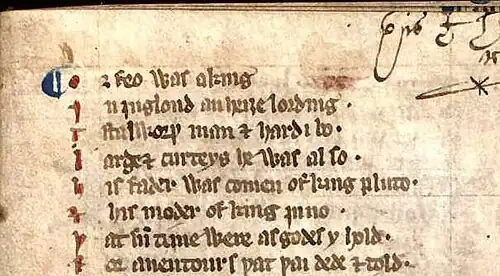 Orfeo was a king
In Inglond an heiȝe lording ·
A stalworþ man & hardi bo ·
Large & curteys he was al so ·
His fader was comen of king pluto ·
& his moder of king iuno ·
Þat sū time were as godes y hold ·
For auentours þat þai dede & told ·